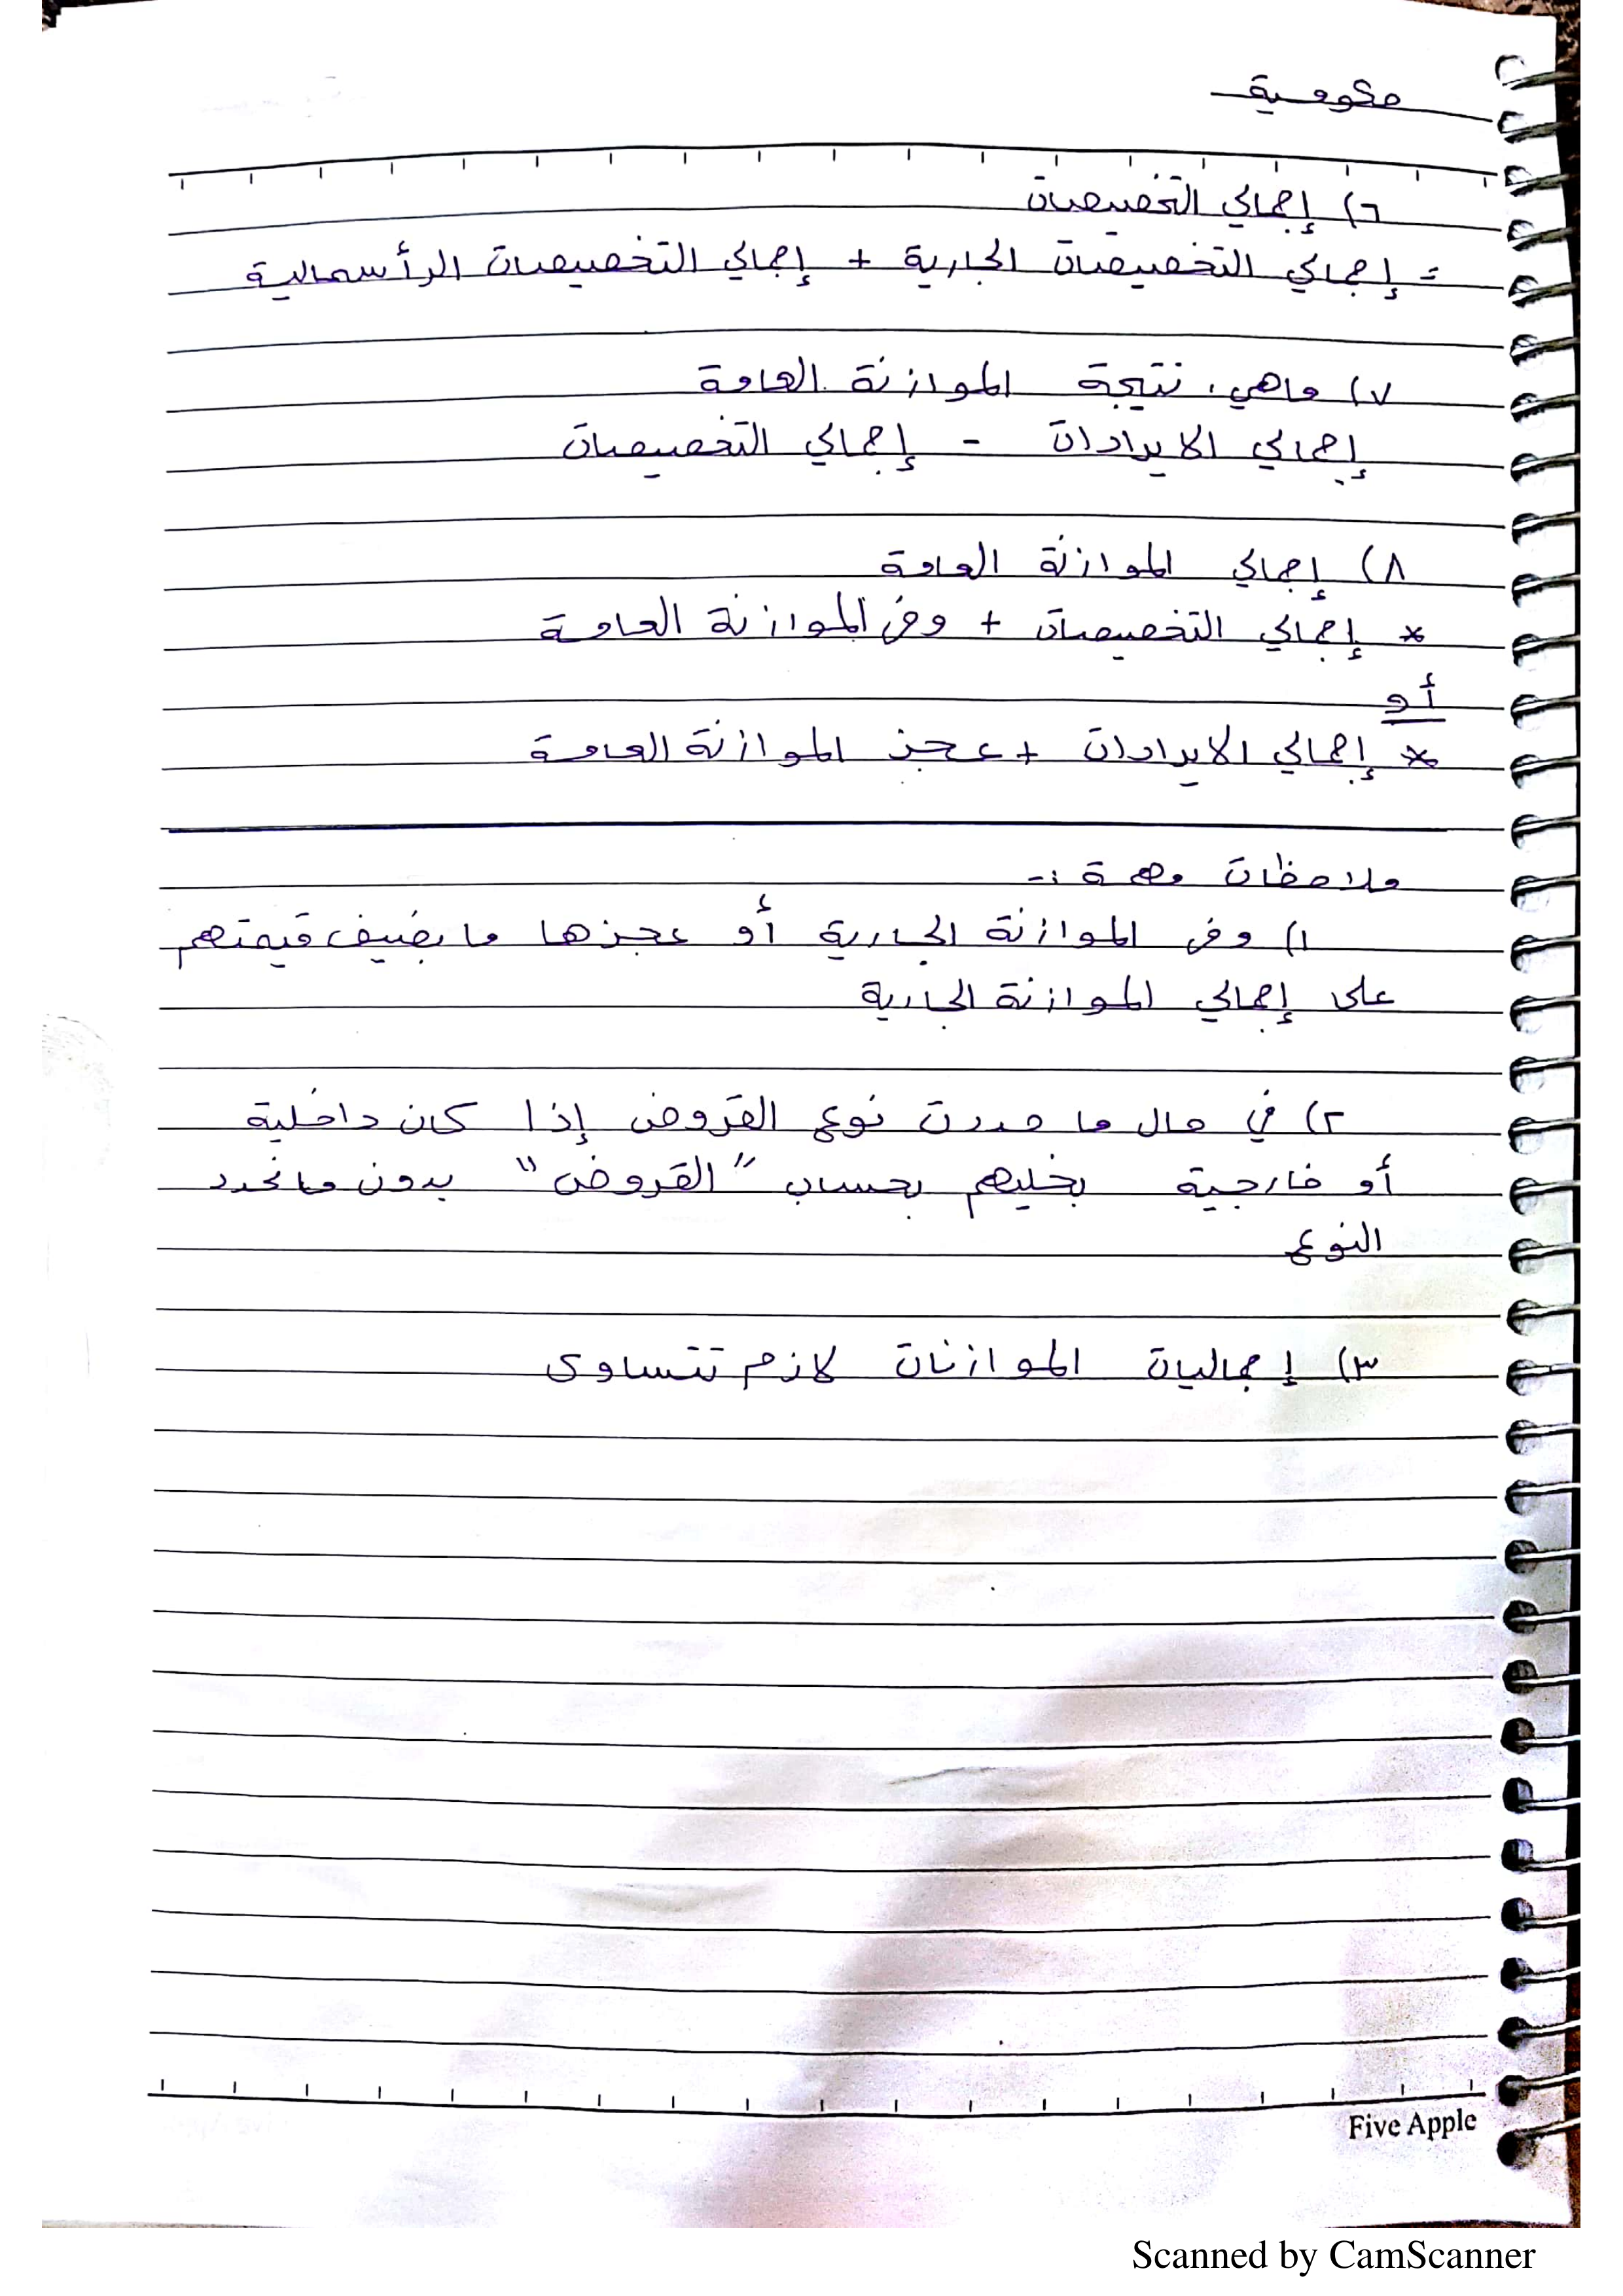 حكومية
٦) إجمالي التخصيصات
= إجمالي التخصيصات الجارية + إجمالي التخصيصات الرأسمالية
٧) ماهي نتيجة الموازنة العامة
إجمالي الايرادات - إجمالي التخصيصات
٨) إجمالي الموازنة العامة
* إجمالي التخصيصات + وفر الموازنة العامة
أو
* إجمالي الايرادات + عجز الموازنة العامة
ملاحظات مهمة :-
١) وفر الموازنة الجارية أو عجزها ما بضيف قيمتهم
على إجمالي الموازنة الجارية
٢) في حال ما حددت نوع القروض إذا كان داخلية
أو خارجية بخليهم بحساب "القروض" بدون ما نحدد
النوع
٣) إجماليات الموازنات لازم تتساوى
Five Apple
Scanned by CamScanner